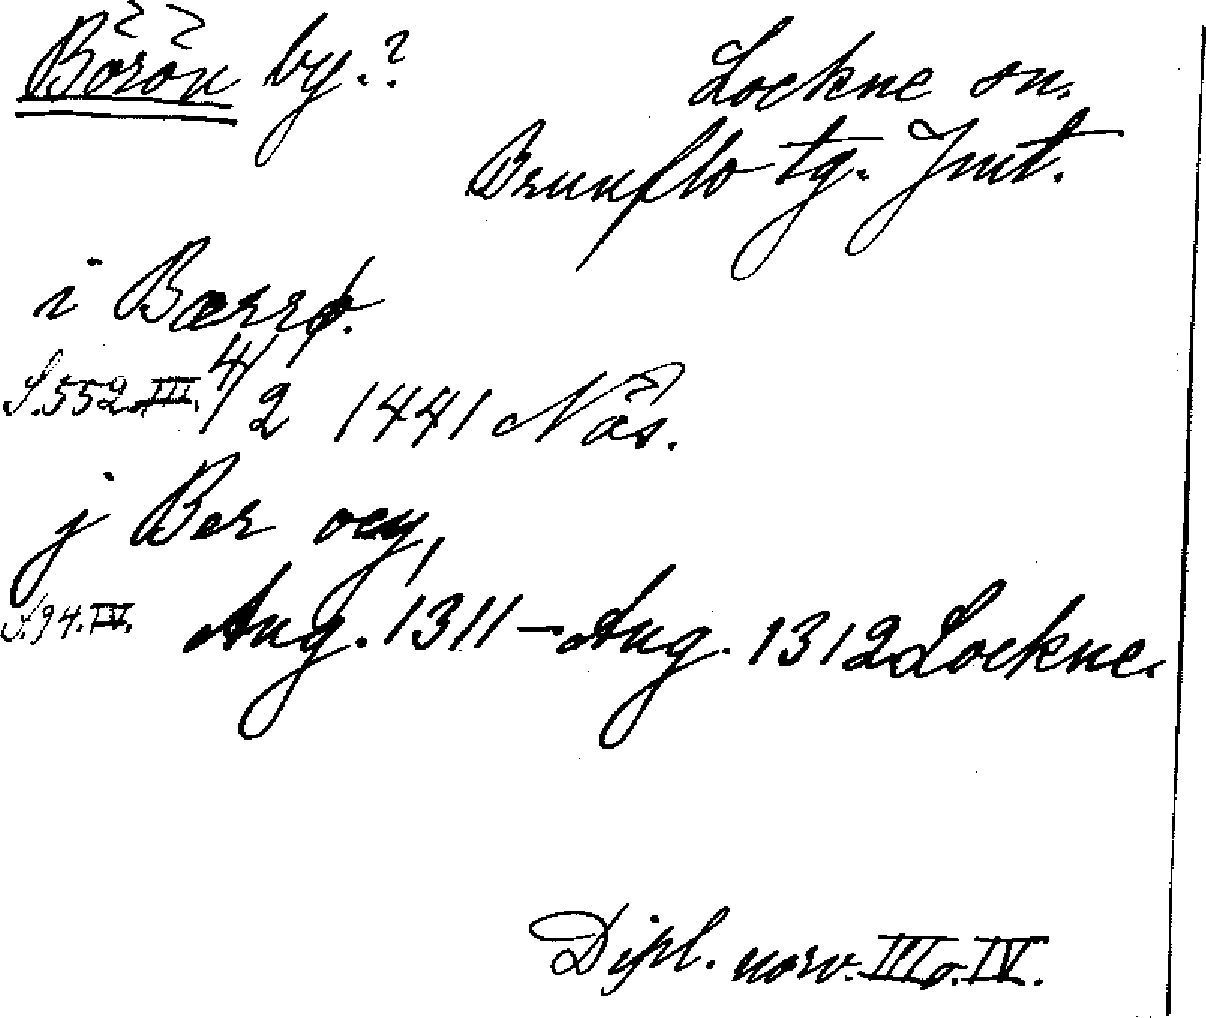 Börön by.?
Lockne sn.
Brunflo tg. Jmt.
i Bærrø.
S.552.III. 4/2 1441 Näs.
j Ber oey,
S.94.IV. Aug. 1311 - Aug. 1312 Lockne.
Dipl. norv. III o. IV.